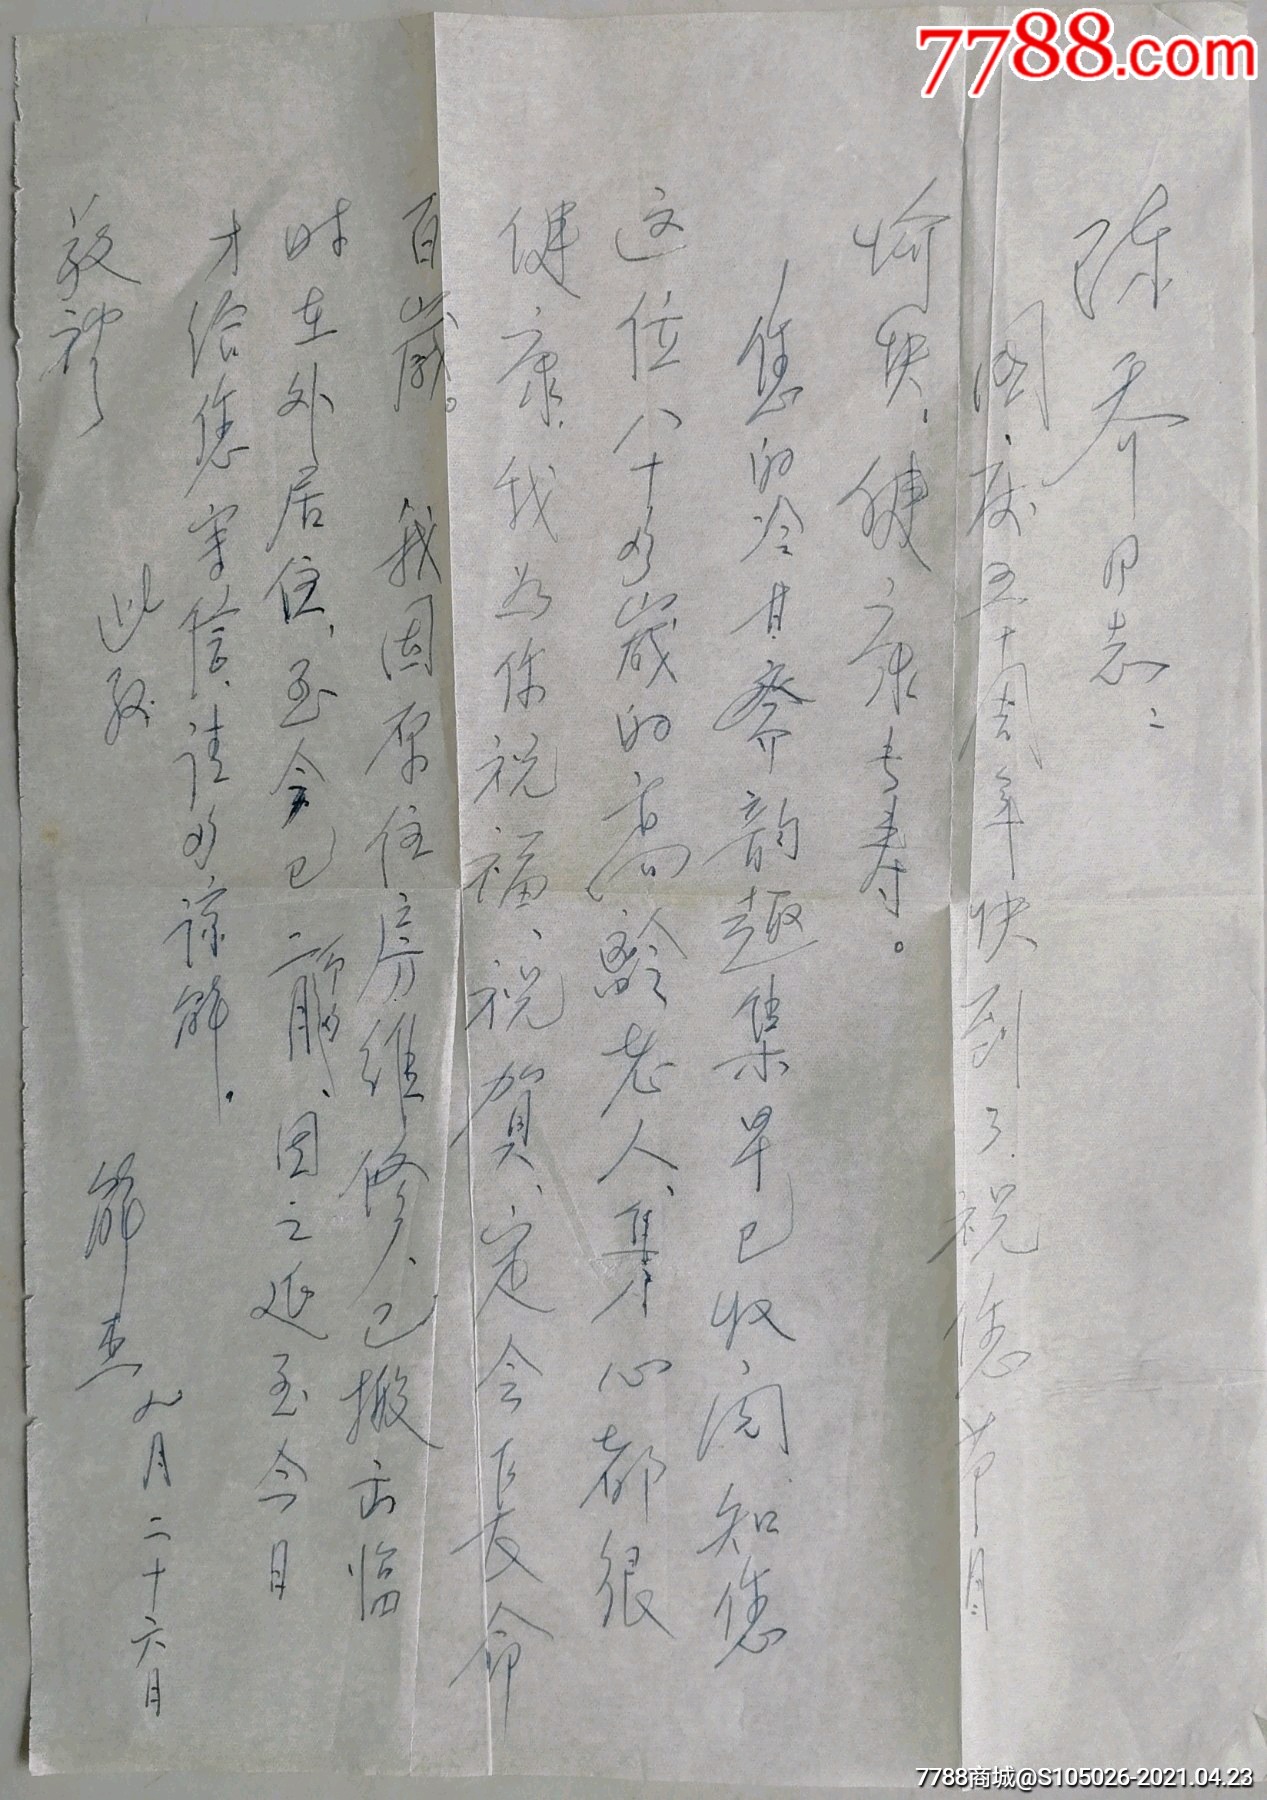 7788.com
陈乔同志：
国庆五十周年快到了.祝您节日
愉快、健康长寿。
您的冷甘斋韵趣集早已收阅.知您
这位八十多岁的高龄老人、身心都很
健康.我为你祝福、祝贺、定会长命
百岁。 我因原住房维修、已搬出临
时在外居住,至今已二个月、因之延至今日
才给您写信.请多谅解.
此致
敬礼
解杰
九月二十六日
7788商城@S105026-2021.04.23